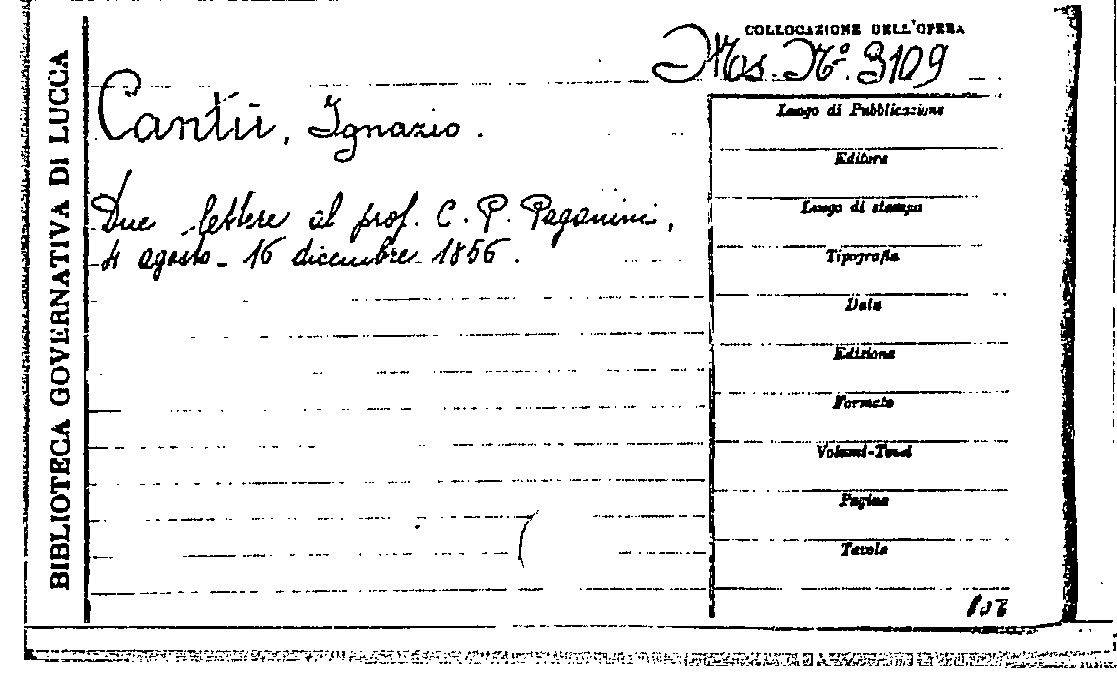 BIBLIOTECA GOVERNATIVA DI LUCCA
COLLOCAZIONE DELL'OPERA
Mos. Nº. 3109
Cantù, Ignazio.
Due lettere al prof. C. P. Paganini,
4 agosto - 16 dicembre 1856.
Luogo di Pubblicazione
Editore
Luogo di stampa
Tipografia
Data
Edizione
Formato
Volumi-Tomi
Pagine
Tavole